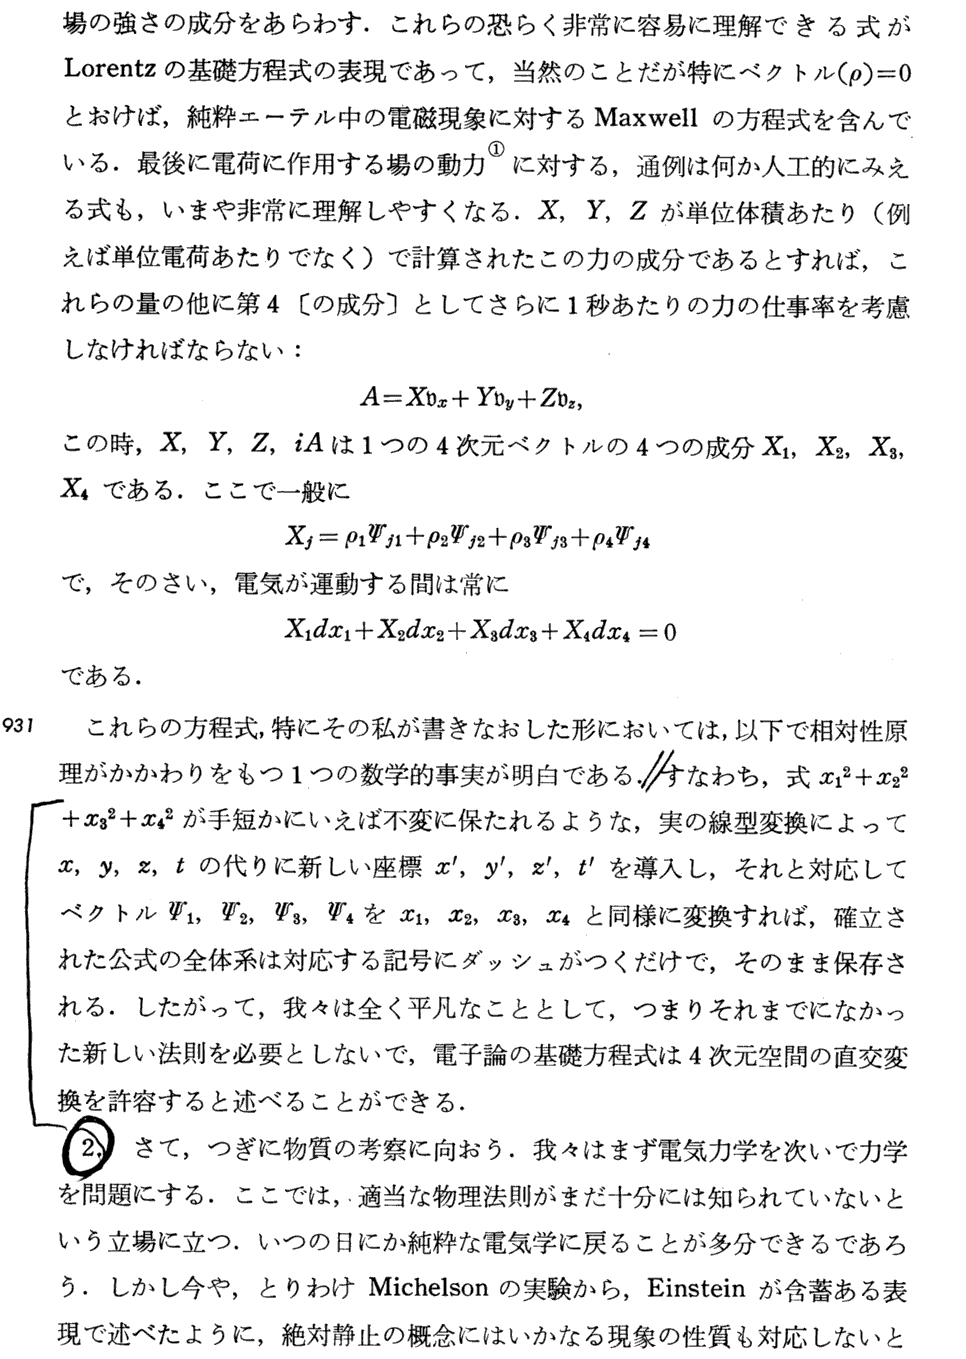 場の強さの成分をあらわす．これらの恐らく非常に容易に理解できる式が
Lorentz の基礎方程式の表現であって，当然のことだが特にベクトル(ρ)=0
とおけば，純粋エーテル中の電磁現象に対する Maxwell の方程式を含んで
いる．最後に電荷に作用する場の動力① に対する，通例は何か人工的にみえ
る式も，いまや非常に理解しやすくなる．X, Y, Z が単位体積あたり（例
えば単位電荷あたりでなく）で計算されたこの力の成分であるとすれば，こ
れらの量の他に第4〔の成分〕としてさらに1秒あたりの力の仕事率を考慮
しなければならない：
A=X𝔳x+Y𝔳y+Z𝔳z,
この時，X, Y, Z, iA は1つの4次元ベクトルの4つの成分 X₁, X₂, X₃,
X₄ である．ここで一般に
Xj = ρ₁Ψj1+ρ₂Ψj2+ρ₃Ψj3+ρ₄Ψj4
で，そのさい，電気が運動する間は常に
X₁dx₁+X₂dx₂+X₃dx₃+X₄dx₄ = 0
である．
931 これらの方程式，特にその私が書きなおした形においては，以下で相対性原
理がかかわりをもつ1つの数学的事実が明白である．//すなわち，式 x₁²+x₂²
+x₃²+x₄² が手短かにいえば不変に保たれるような，実の線型変換によって
x, y, z, t の代りに新しい座標 x′, y′, z′, t′ を導入し，それと対応して
ベクトル Ψ₁, Ψ₂, Ψ₃, Ψ₄ を x₁, x₂, x₃, x₄ と同様に変換すれば，確立さ
れた公式の全体系は対応する記号にダッシュがつくだけで，そのまま保存さ
れる．したがって，我々は全く平凡なこととして，つまりそれまでになかっ
た新しい法則を必要としないで，電子論の基礎方程式は4次元空間の直交変
換を許容すると述べることができる．
2, さて，つぎに物質の考察に向おう．我々はまず電気力学を次いで力学
を問題にする．ここでは，適当な物理法則がまだ十分には知られていないと
いう立場に立つ．いつの日にか純粋な電気学に戻ることが多分できるであろ
う．しかし今や，とりわけ Michelson の実験から，Einstein が含蓄ある表
現で述べたように，絶対静止の概念にはいかなる現象の性質も対応しないと